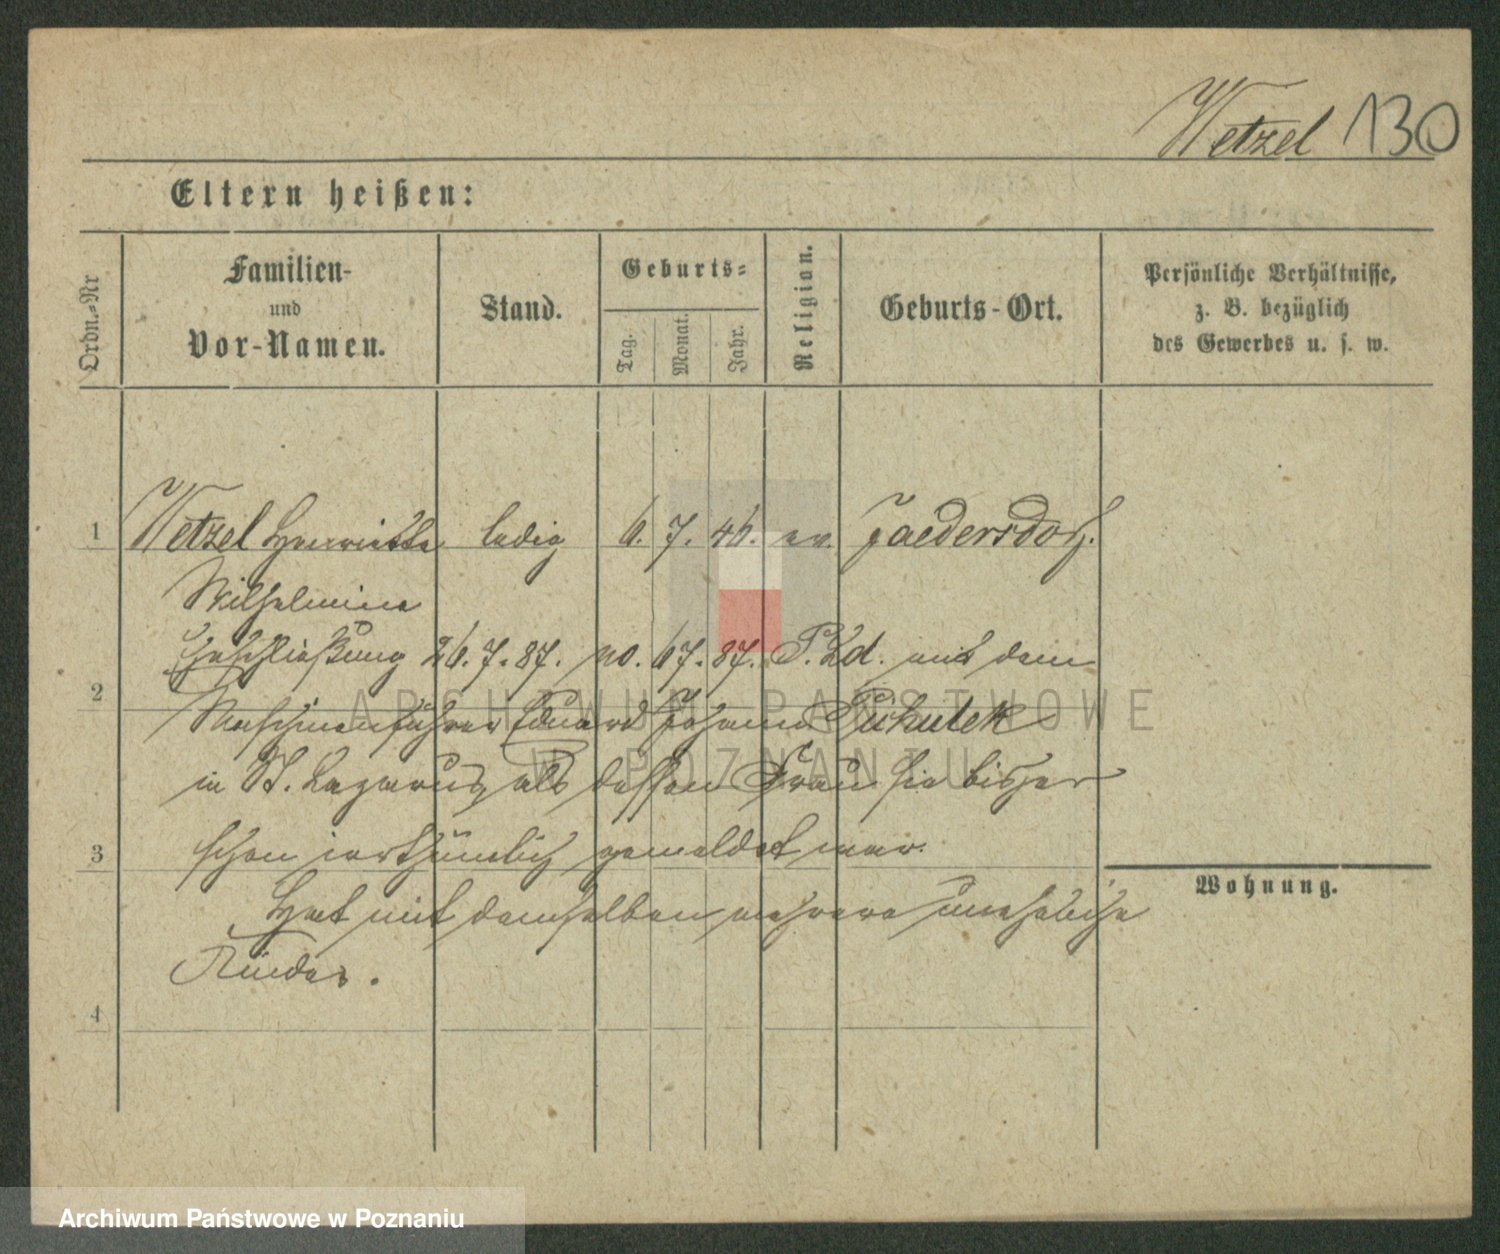 Wetzel 130
Eltern heißen:
Ordn.-Nr
Familien-
und
Vor-Namen.
Stand.
Geburts-
Tag.
Monat.
Jahr.
Religion.
Geburts-Ort.
Persönliche Verhältnisse,
z. B. bezüglich
des Gewerbes u. s. w.
1 Wetzel Henriette ledig 6. 7. 46. ev. Jaedersdorf.
Wilhelmine
Eheschließung 26. 7. 87. no. 67. 87. P. Ld. mit dem
2
Maschinenführer Eduard Johann Pikulek
in St. Lazarus, als dessen Frau sie bisher
3 schon irrthümlich gemeldet war.
Wohnung.
Hat mit demselben mehrere uneheliche
Kinder.
4
ARCHIWUM PAŃSTWOWE
W POZNANIU
Archiwum Państwowe w Poznaniu